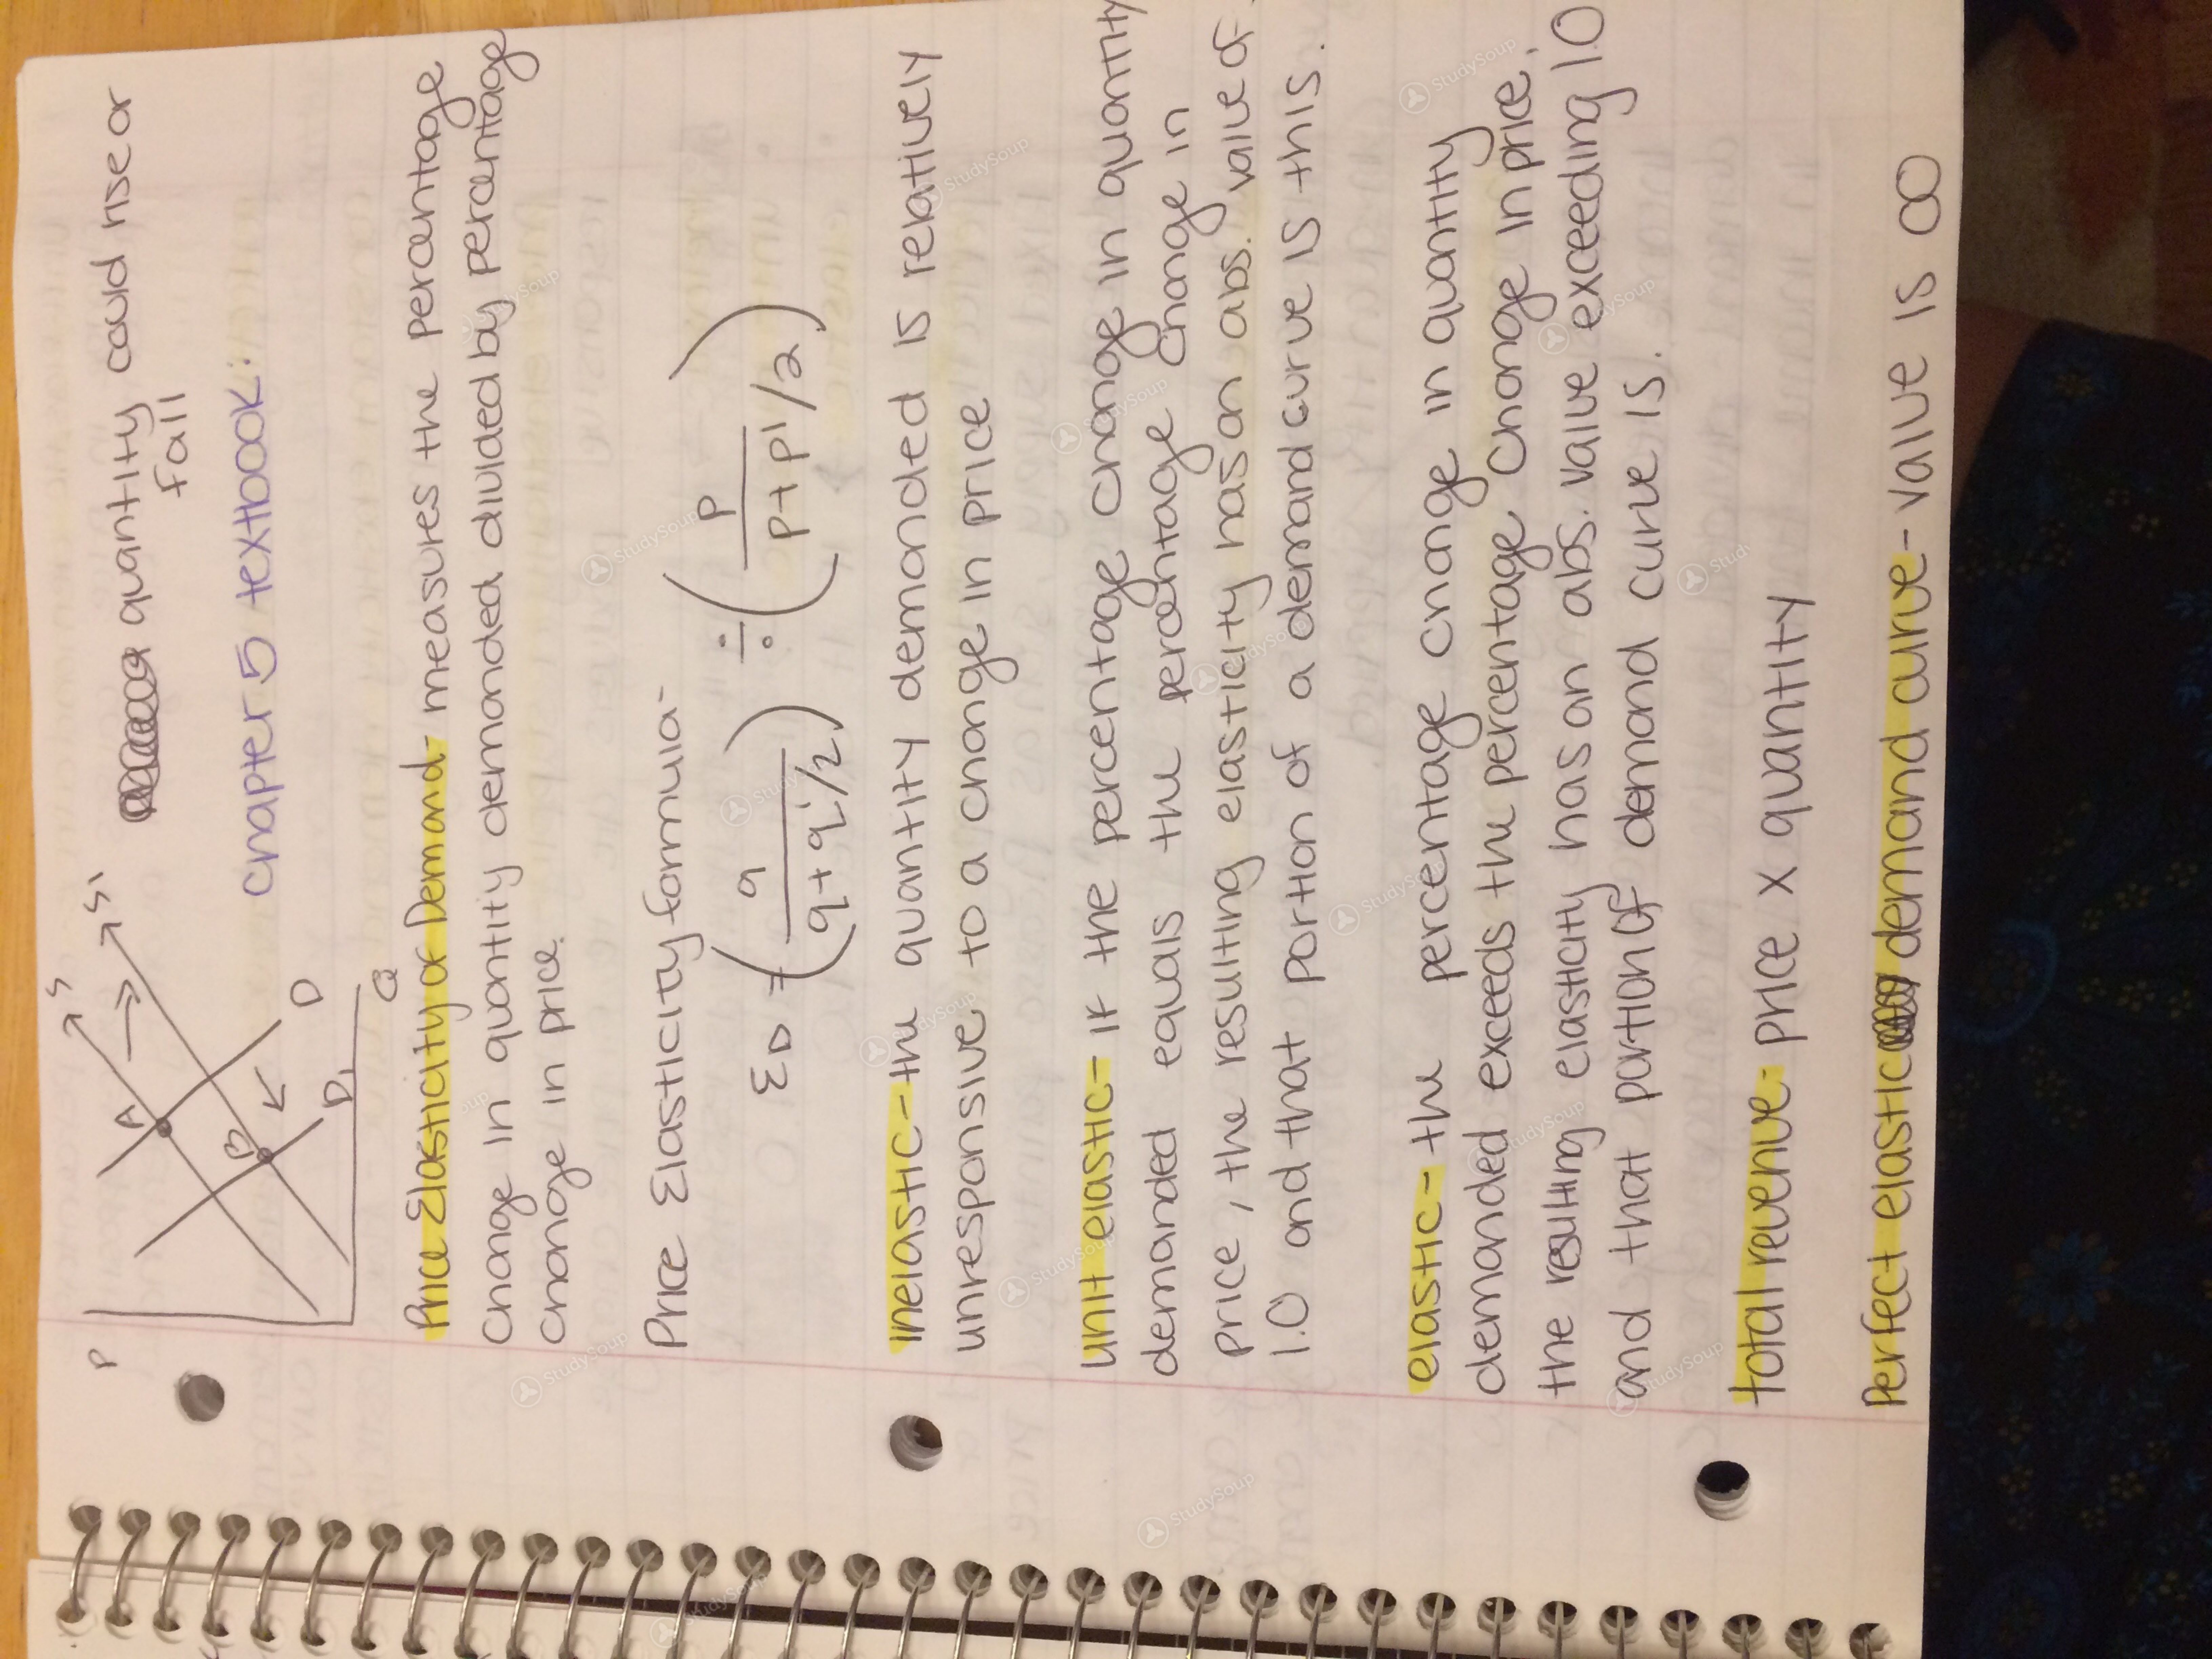 P
S
S1
A
B
D
D1
Q
quantity could rise or
fall
chapter 5 textbook:
Price Elasticity of Demand- measures the percentage
change in quantity demanded divided by percentage
change in price.
Price Elasticity formula-
ED = (q / q+q'/2) ÷ (p / p+p'/2)
inelastic- the quantity demanded is relatively
unresponsive to a change in price
unit elastic- if the percentage change in quantity
demanded equals the percentage change in
price, the resulting elasticity has an abs. value of
1.0 and that portion of a demand curve is this.
elastic- the percentage change in quantity
demanded exceeds the percentage change in price,
the resulting elasticity has an abs. value exceeding 1.0
and that portion of demand curve is.
total revenue- price x quantity
Perfect elastic demand curve- value is ∞
StudySoup